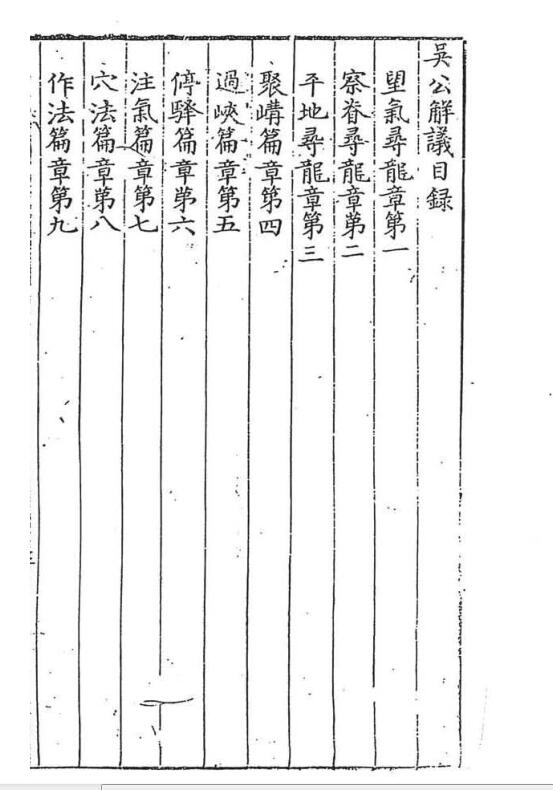 吳公解議目録
望氣尋龍章第一
察脊尋龍章第二
平地尋龍章第三
聚嶹篇章第四
過峽篇章第五
停驛篇章第六
注氣篇章第七
穴法篇章第八
作法篇章第九